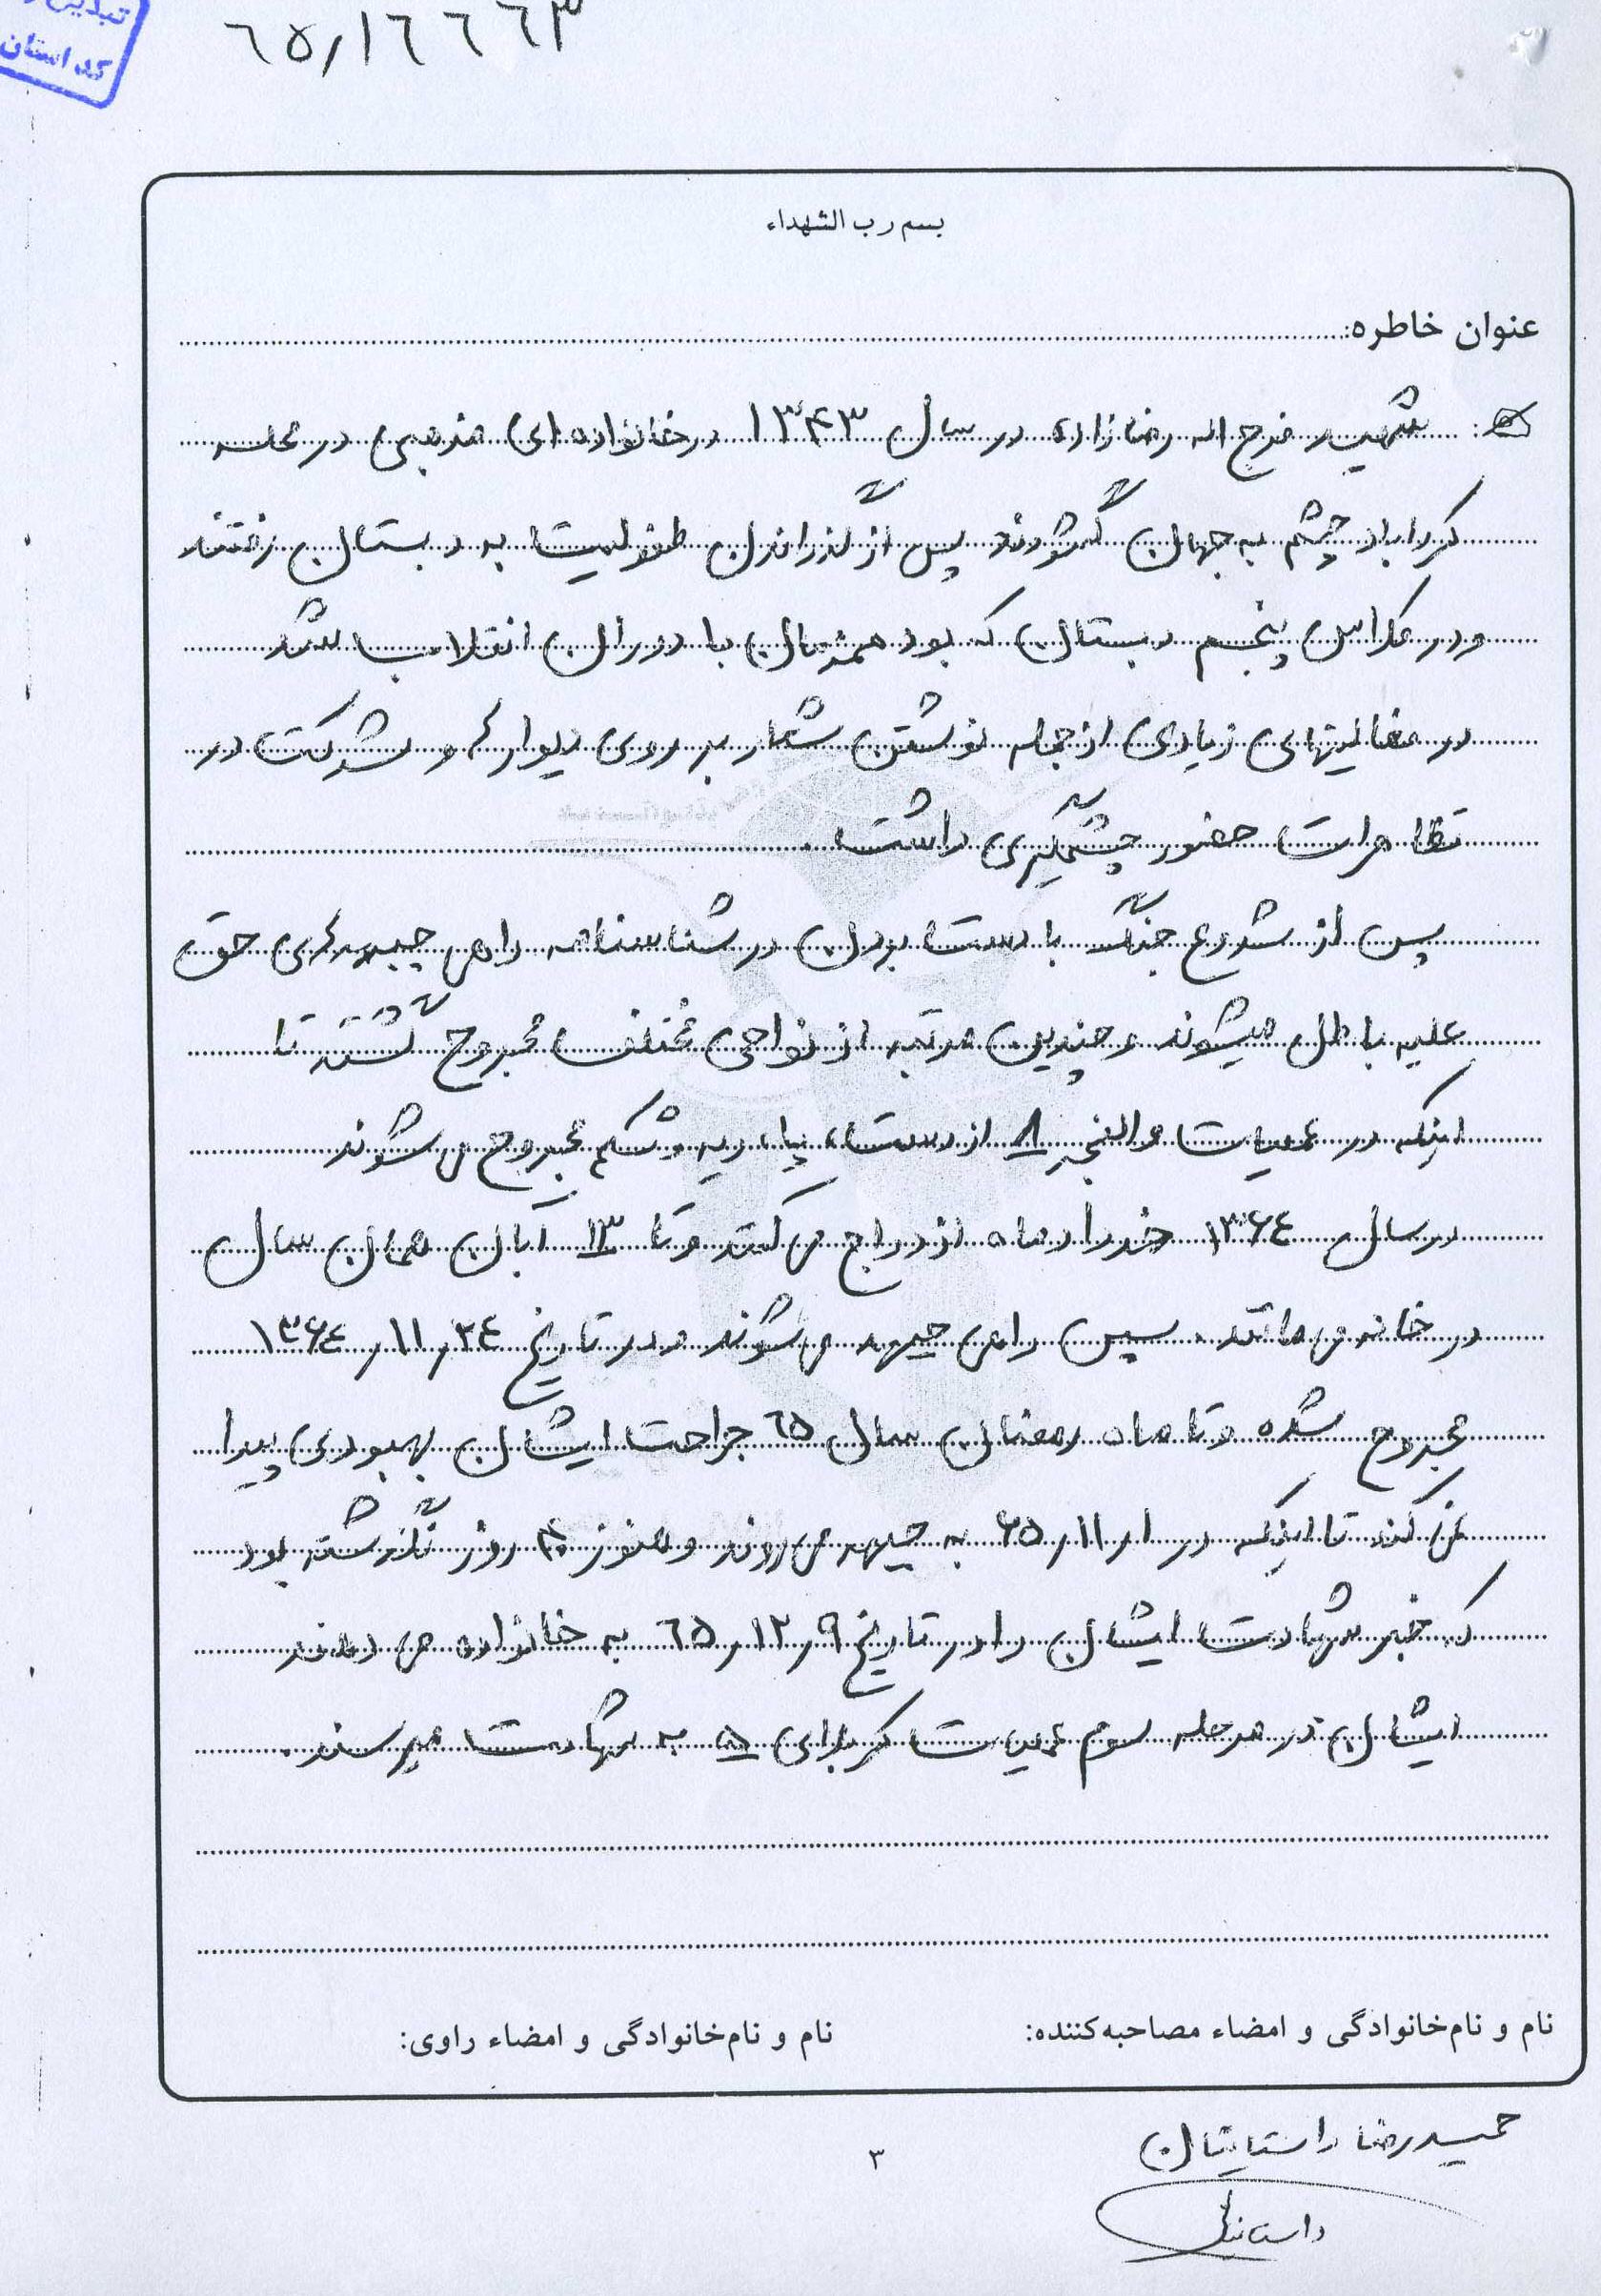 کد استان
٦٥/١٦٦٦٣
بسم رب الشهداء
عنوان خاطره:
: شهید فرج اله رضازاده در سال ۱۳۴۳ در خانواده ای مذهبی در محله
کرداباد چشم به جهان گشودند پس از گذراندن طفولیت به دبستان رفتند
و در کلاس پنجم دبستان که بود همزمان با دوران انقلاب شد
در فعالیتهای زیادی از جمله نوشتن شعار بر روی دیوارها و شرکت در
تظاهرات حضور چشمگیری داشت.
پس از شروع جنگ با دست بردن در شناسنامه راهی جبهه های حق
علیه باطل میشوند و چندین مرتبه از نواحی مختلف مجروح گشته تا
اینکه در عملیات والفجر ۸ از دست، پا، ریه و شکم مجروح می شوند
در سال ۱۳۶٤ خرداد ماه ازدواج می کنند و تا ۱۳ آبان همان سال
در خانه می مانند. سپس راهی جبهه می شوند و در تاریخ ۲٤ر۱۱ر۱۳۶٤
مجروح شده و تا ماه رمضان سال ٦۵ جراحت ایشان بهبودی پیدا
نمی کند تا اینکه در ۱ر۱۱ر۶۵ به جبهه می روند و هنوز روز نگذشته بود
که خبر شهادت ایشان را در تاریخ ۹ر۱۲ر٦۵ به خانواده می دهند
ایشان در مرحله سوم عملیات کربلای ۵ به شهادت میرسند.
نام و نام‌خانوادگی و امضاء مصاحبه‌کننده:
نام و نام‌خانوادگی و امضاء راوی:
حمیدرضا داستانیان
۳